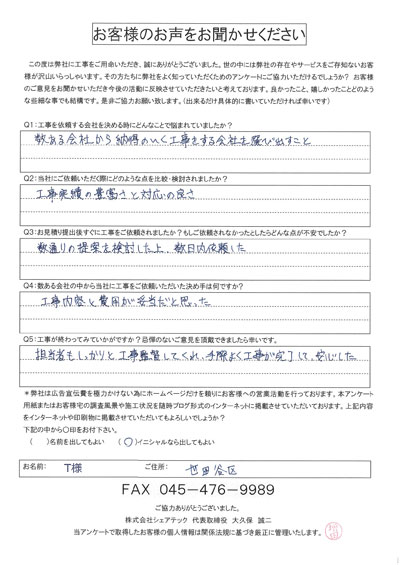 お客様のお声をお聞かせください
この度は弊社に工事をご用命いただき、誠にありがとうございました。世の中には弊社の存在やサービスをご存知ないお客様
が沢山いらっしゃいます。その方たちに弊社をよく知っていただくためのアンケートにご協力いただけるでしょうか？ お客様
のご意見をお聞かせいただき今後の活動に反映させていただきたいと考えております。良かったこと、嬉しかったことどのよう
な些細な事でも結構です。是非ご協力お願い致します。(出来るだけ具体的に書いていただければ幸いです)
Q1:工事を依頼する会社を決める時にどんなことで悩まれていましたか？
数ある会社から納得のいく工事をする会社を選び出すこと
Q2:当社にご依頼いただく際にどのような点を比較・検討されましたか？
工事実績の豊富さと対応の良さ
Q3:お見積り提出後すぐに工事をご依頼されましたか？もしご依頼されなかったとしたらどんな点が不安でしたか？
数通りの提案を検討した上、数日内依頼した
Q4:数ある会社の中から当社に工事をご依頼いただいた決め手は何ですか？
工事内容と費用が妥当だと思った
Q5:工事が終わってみていかがですか？忌憚のないご意見を頂戴できましたら幸いです。
担当者もしっかりと工事監督してくれ、手際よく工事が完了して、安心した
＊弊社は広告宣伝費を極力かけない為にホームページだけを頼りにお客様への営業活動を行っております。本アンケート
用紙またはお客様宅の調査風景や施工状況を随時ブログ形式のインターネットに掲載させていただいております。上記内容
をインターネットや印刷物に掲載させていただいてもよろしいでしょうか？
下記の中から〇印をお付下さい。
(　)名前を出してもよい　(〇)イニシャルなら出してもよい
お名前: T様 ご住所: 世田谷区
FAX 045-476-9989
ご協力ありがとうございました。
株式会社シェアテック 代表取締役 大久保 誠二
当アンケートで取得したお客様の個人情報は関係法規に基づき厳正に管理いたします。